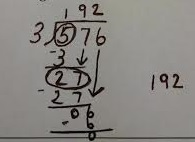 192
3)576
-3
27
-27
06
-6
0
192